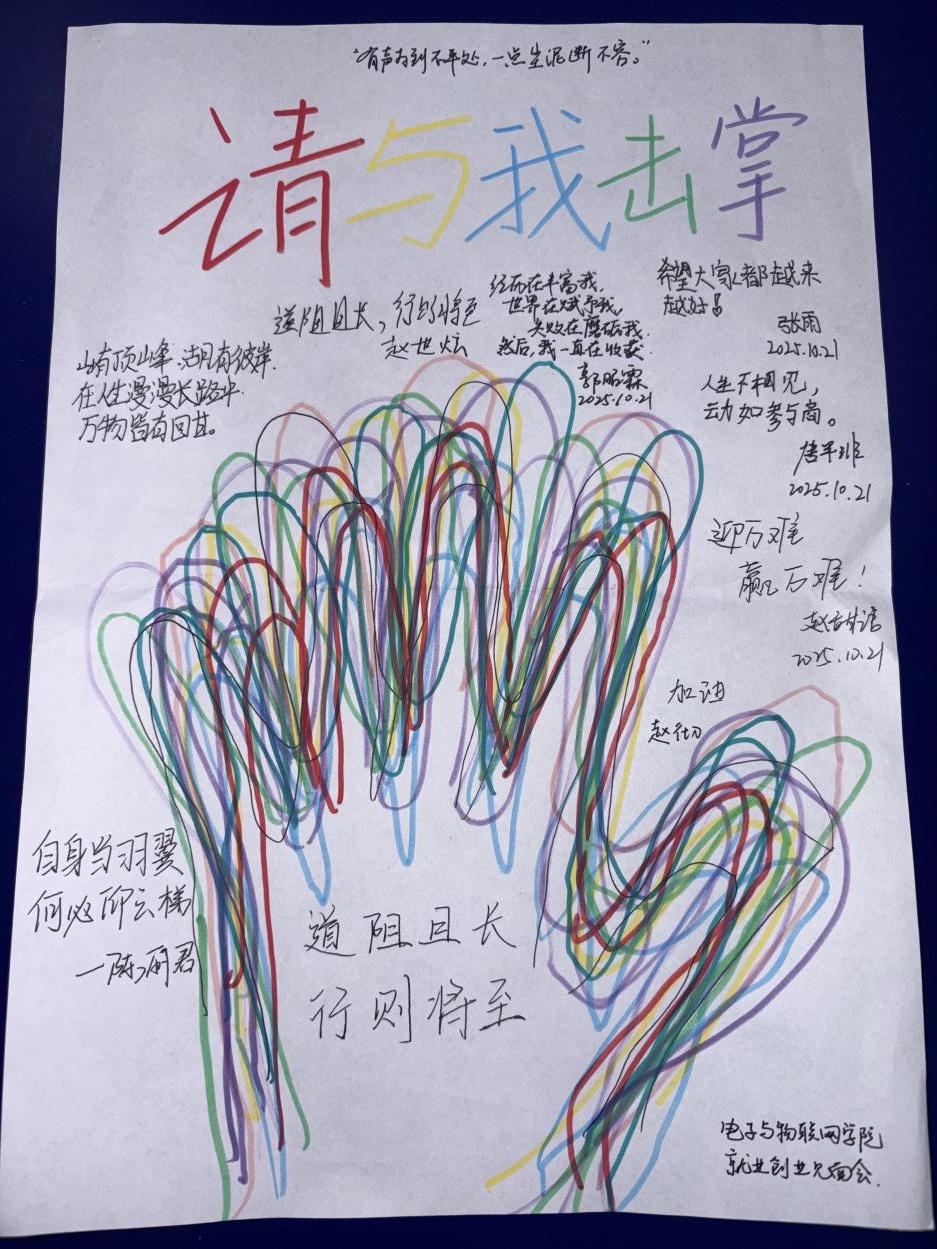 请与我击掌
道阻且长,行则将至
赵世炫
经历在丰富我,
世界在赋予我,
失败在磨砺我,
然后,我一直在收获.
郭昭霖
2025.10.21
希望大家都越来
越好!
张雨
2025.10.21
山有顶峰,湖有彼岸.
在人生漫漫长路中.
万物皆有回甘。
人生不相见,
动如参与商。
2025.10.21
迎万难
赢万难!
2025.10.21
加油
自身当羽翼
何必仰云梯
道阻且长
行则将至
电子与物联网学院